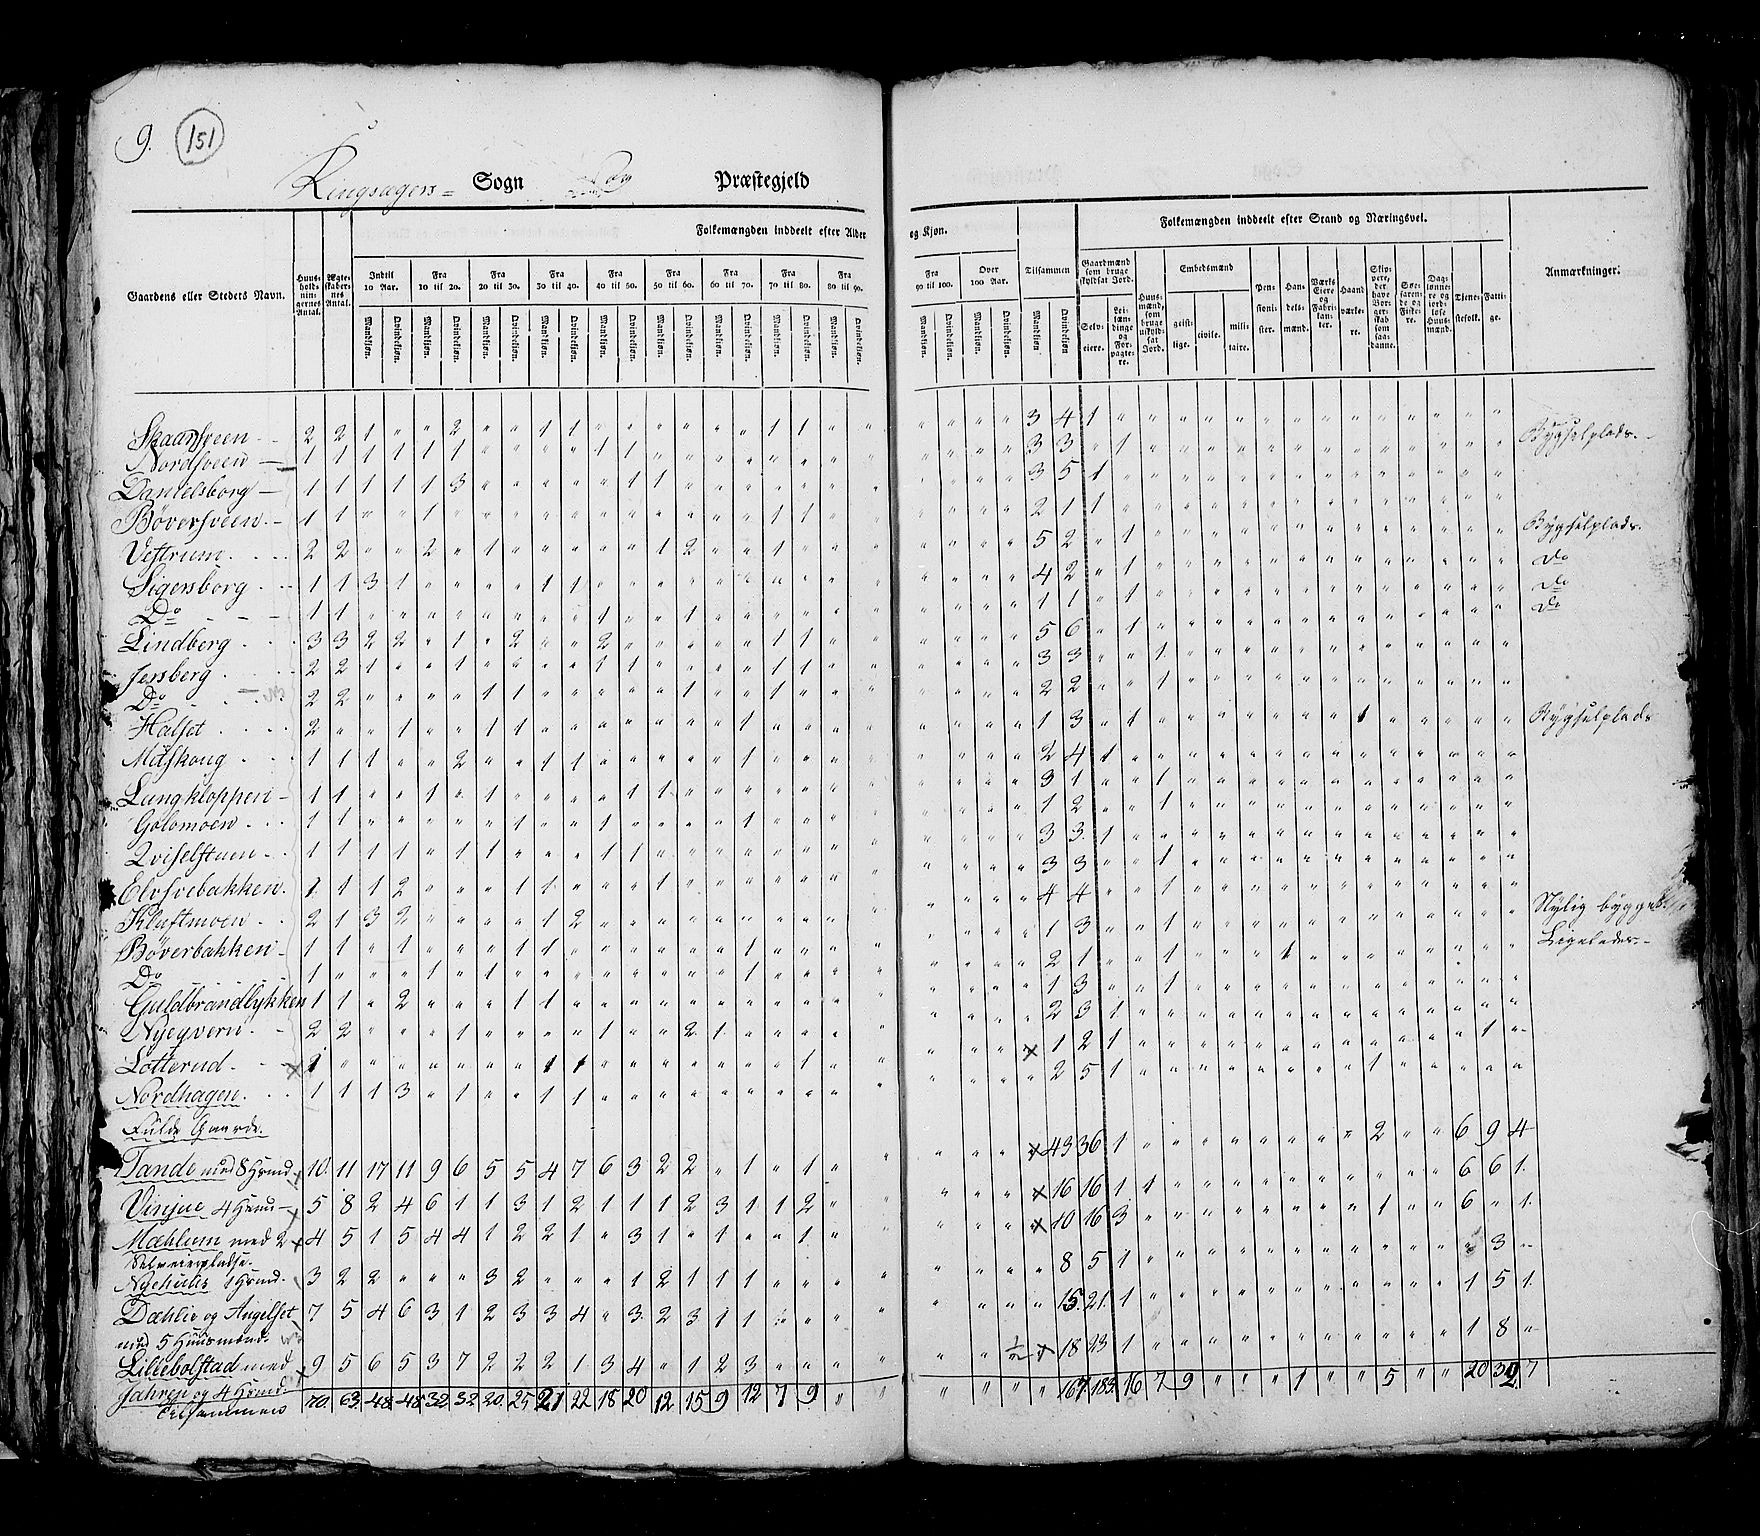 9. 151
Ringsagers = Sogn Præstegjeld
Folkemængden inddeelt efter Alder og Kjøn.
Tilsammen
Folkemængden inddeelt efter Stand og Næringsvei.
Gaardens eller Stedets Navn.
Huusholdningernes Antal.
Ægteskabernes Antal.
Indtil 10 Aar.
Fra 10 til 20.
Fra 20 til 30.
Fra 30 til 40.
Fra 40 til 50.
Fra 50 til 60.
Fra 60 til 70.
Fra 70 til 80.
Fra 80 til 90.
Fra 90 til 100.
Over 100 Aar.
Mandkjøn. Qvindekjøn.
Gaardmænd som bruge skyldsat Jord.
Selveiere.
Leilændinge og Forpagtere.
Huusmænd, som bruge uskyldsat Jord.
Embedsmænd
geistlige. civile. militaire.
Pensionister.
Handelsmænd.
Værks Eiere og Fabrikanter.
Haandværkere.
Skippere, der have Borgerskab som saadanne.
Søefarende og Fiskere.
Dagslønnere og jordløse Huusmænd.
Tjenestefolk.
Fattige.
Anmærkninger.
Skaarsveen 2 2 1 " " 2 " " 1 1 " " " " " " 1 1 " " " " " " 3 4 1
Nordsveen 1 1 1 1 1 1 " " " " 1 1 3 3 " 1 Bygselplads.
Danielsborg 1 1 1 1 1 3 " " " " " 1 1 3 5 1
Böversveen 1 1 " " 1 " 1 1 2 1 1
Vestrum 2 2 " " 2 " 1 " " " " " 1 2 " " 1 5 2 " 1 Bygselplads.
Sigersborg 1 1 3 1 " " " " 1 1 4 2 " 1 Do
Do 1 1 " " " " " " " " 1 " " 1 1 1 " 1 Do
Lindberg 3 3 2 2 " 1 " 2 " " 2 " " " " " 1 1 5 6 " 1 Do
Jersberg 2 2 1 " " 1 " " " " 1 1 " " " " 1 1 3 3 " " 1
Do 2 2 " " " " 1 1 " " " " " 1 " " 1 2 2 " " 1
Halset 2 " " 1 " " 1 1 " " " " " " " 1 1 3 " 1 1 Bygselplads
Maskoug 1 1 1 " " 2 " " 1 1 " " " " " 1 2 4 1
Lungkloppen 1 1 " " 1 " 1 " " " " 1 1 3 1 " " 1
Golomoen 1 1 " " " " " 1 " " 1 " " " " 1 1 2 " " 1
Qviselstuen 1 1 1 1 " 1 1 " " " 1 1 3 3 1
Elvsvebakken 1 1 1 2 " " " 1 1 " " " 1 3 3 " " 1
Kloftmoen 2 1 3 2 " " " " 1 2 4 4 " " 1
Böverbakken 1 1 " 1 " " " 1 1 " " " " " " 1 1 3 " " 1 Nylig bygget
Do 1 " " " 1 " 1 " " " " " " " " 1 2 1 1 Ligeledes
Guldbrandlykken 1 1 " 2 " " " 1 1 1 3 " " 1
Nyegvern 2 2 " " " 1 " " " " 1 " " 2 1 2 3 1
Lotterud 1 " " " " " " " 1 1 " " " " " " " 1 × 1 2 1 1
Nordhagen 1 1 1 3 " 1 " " 1 1 2 5 1 1
Fulde Gaarde.
Tande med 8 Hmd 10 11 17 11 9 6 5 5 4 7 6 3 2 2 " 1 " 1 × 43 36 1 2 6 9 4
Vinjue 4 Huus 5 8 2 4 6 1 1 3 1 2 1 1 1 2 3 1 1 2 × 16 16 1 1 6 6 1
Mæhlum med 2 Selveierpladse. 4 5 1 5 4 4 1 2 2 1 " 3 1 " 1 " " 1 × 10 16 3 1 6 " 1
Nyehuus 1 Hmd. 3 2 2 " " " 3 2 " " " 1 2 1 1 1 8 5 1 " 3
Dæhlie og Angelset med 5 Huusmænd. 7 5 4 6 3 1 2 3 3 4 " 3 2 3 1 1 15 21 1 1 5 1
Lillebolstad med Jahren og 4 Hmd. 9 5 6 5 3 7 2 2 2 1 3 4 " 1 2 3 × 18 23 1 1 8
Tilsammen 70 63 48 48 32 32 20 25 21 22 18 20 12 15 9 12 7 9 " " " " " " 167 183 16 7 9 " " " 1 " " 5 " " 20 32 7